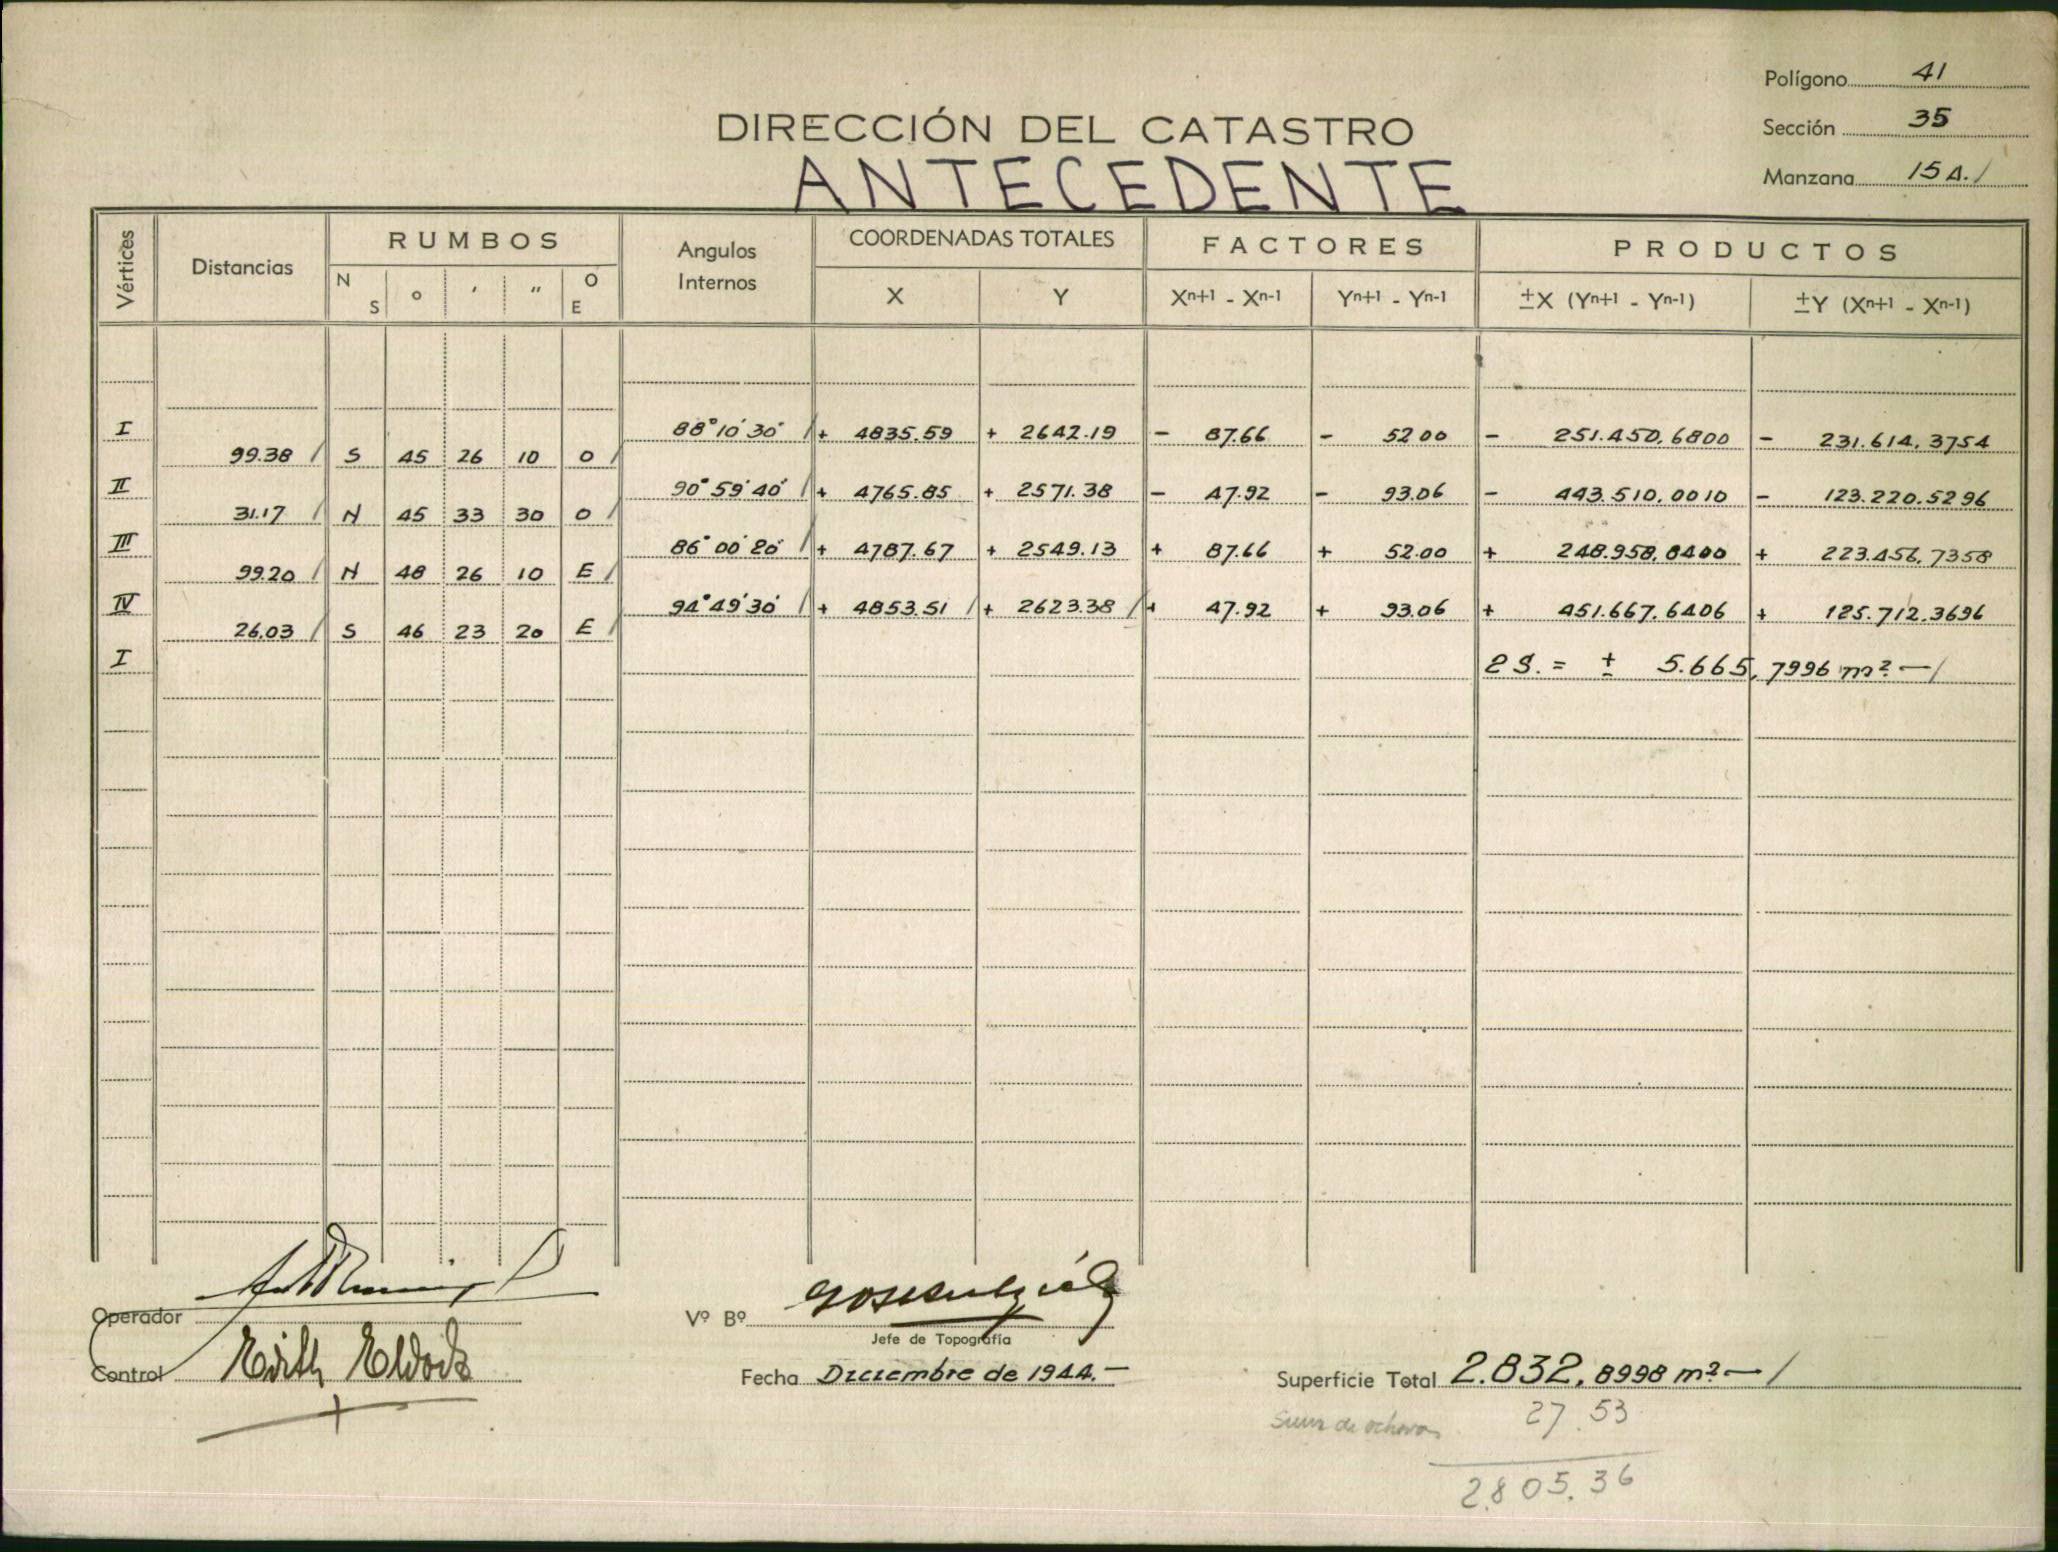 Polígono 41
Sección 35
Manzana 15A./
DIRECCIÓN DEL CATASTRO
ANTECEDENTE
Vértices Distancias RUMBOS Angulos Internos COORDENADAS TOTALES FACTORES PRODUCTOS
N S ° ' " O E X Y Xn+1 - Xn-1 Yn+1 - Yn-1 ±X (Yn+1 - Yn-1) ±Y (Xn+1 - Xn-1)
I 88°10'30" / + 4835.59 + 2642.19 - 87.66 - 52.00 - 251.450,6800 - 231.614,3754
99.38 / S 45 26 10 O /
II 90°59'40" / + 4765.85 + 2571.38 - 47.92 - 93.06 - 443.510,0010 - 123.220,5296
31.17 / N 45 33 30 O /
III 86°00'20" / + 4787.67 + 2549.13 + 87.66 + 52.00 + 248.958,8400 + 223.456,7358
99.20 / N 48 26 10 E /
IV 94°49'30" / + 4853.51 / + 2623.38 / + 47.92 + 93.06 + 451.667,6406 + 125.712,3696
26.03 / S 46 23 20 E /
I 2S. = ± 5.665,7996 m² — /
Operador
Control Edith Eldock
Vº Bº
Jefe de Topografía
Fecha Diciembre de 1944.—
Superficie Total 2.832,8998 m² — /
Suma de ochavas 27.53
2805.36